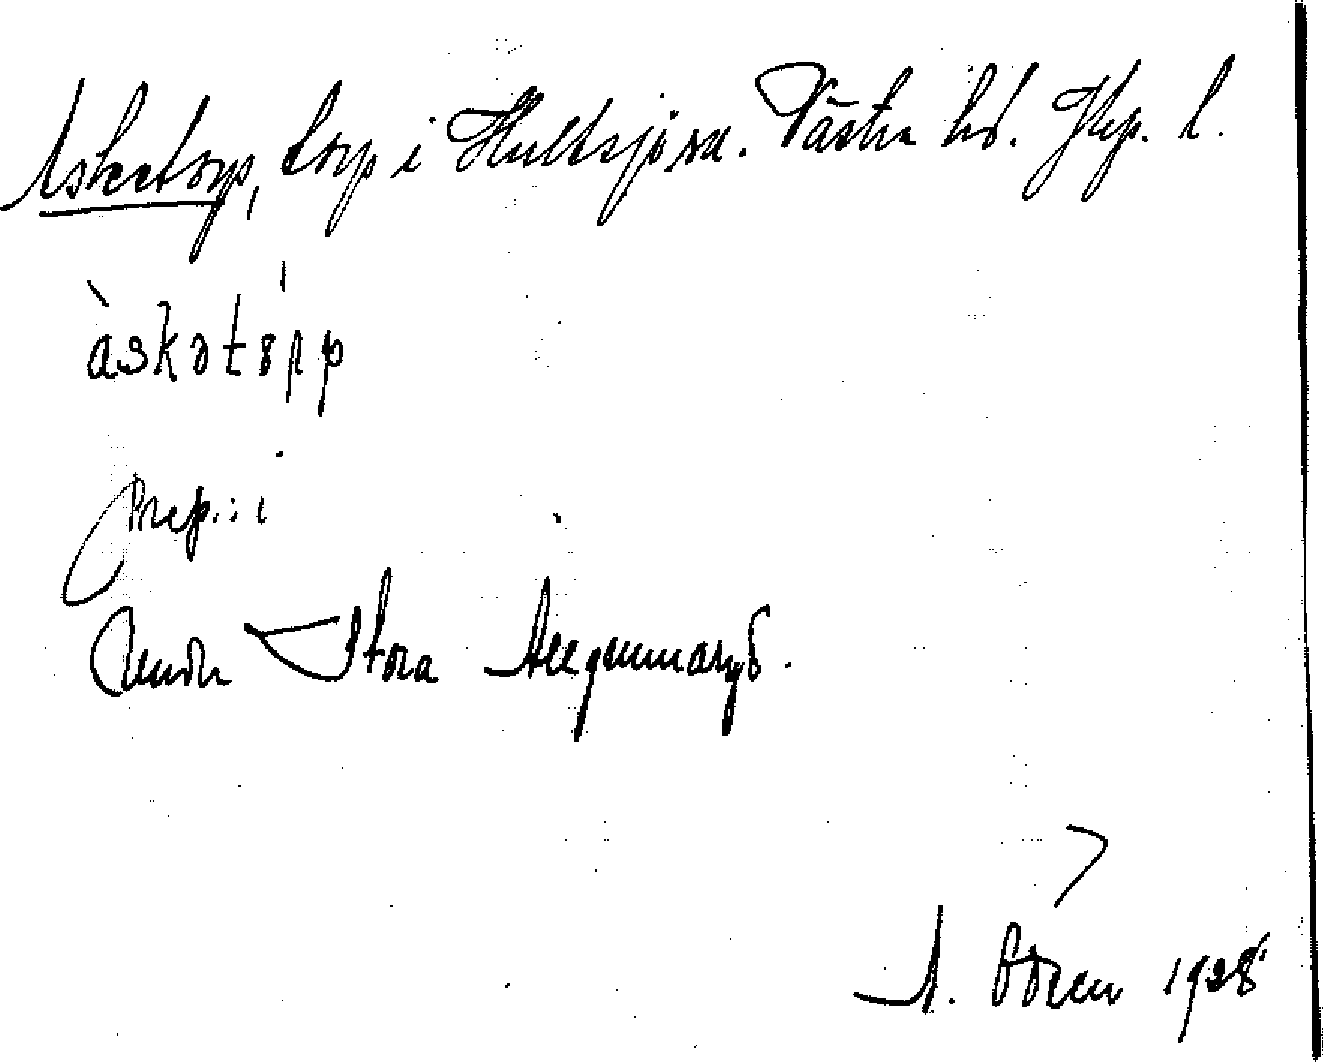 Asketorp, torp i Hultsjö sn. Västra hd. Jkp. l.
àskətórp
prep.: i
Under Stora Aeggemmaryd.
A. Bören 1928